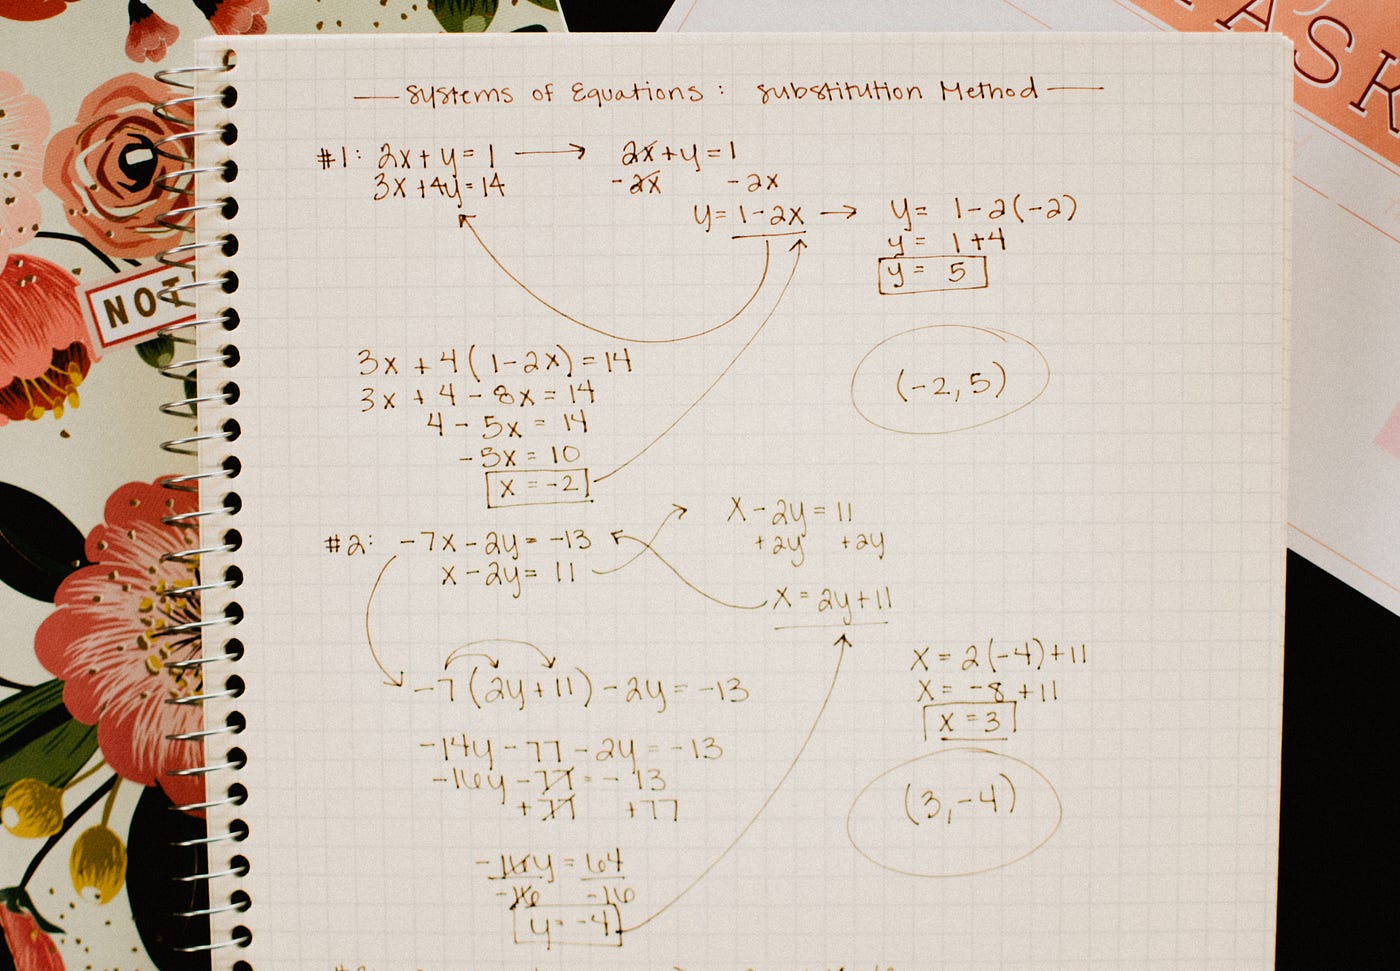 Systems of Equations: Substitution Method
#1: 2x + y = 1
3x + 4y = 14
2x + y = 1
-2x -2x
y = 1 - 2x
y = 1 - 2(-2)
y = 1 + 4
y = 5
(-2, 5)
3x + 4(1 - 2x) = 14
3x + 4 - 8x = 14
4 - 5x = 14
-5x = 10
x = -2
#2: -7x - 2y = -13
x - 2y = 11
x - 2y = 11
+2y +2y
x = 2y + 11
-7(2y + 11) - 2y = -13
-14y - 77 - 2y = -13
-16y - 77 = -13
+77 +77
-16y = 64
-16 -16
y = -4
x = 2(-4) + 11
x = -8 + 11
x = 3
(3, -4)
NOT
TASK